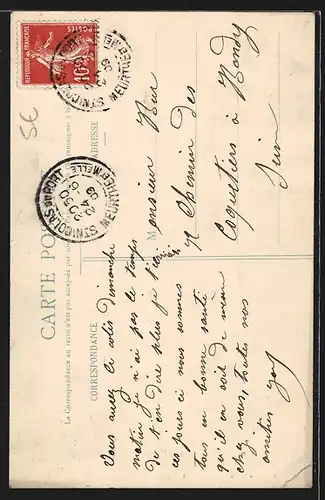 CARTE POSTALE
La Correspondance au recto n'est pas acceptée par
CORRESPONDANCE
ADRESSE
REPUBLIQUE FRANÇAISE
POSTES
10
ST NICOLAS DU PORT
MEURTHE ET MELLE
Vous aurez le colis dimanche
matin, je n'ai pas le temps
de t'en dire plus je
ces jours ci nous sommes
tous en bonne santé
qu'il en soit de même
chez vous, toutes nos
amitiés
M
Monsieur
Chemin des
Coquetiers à Bondy
Seine